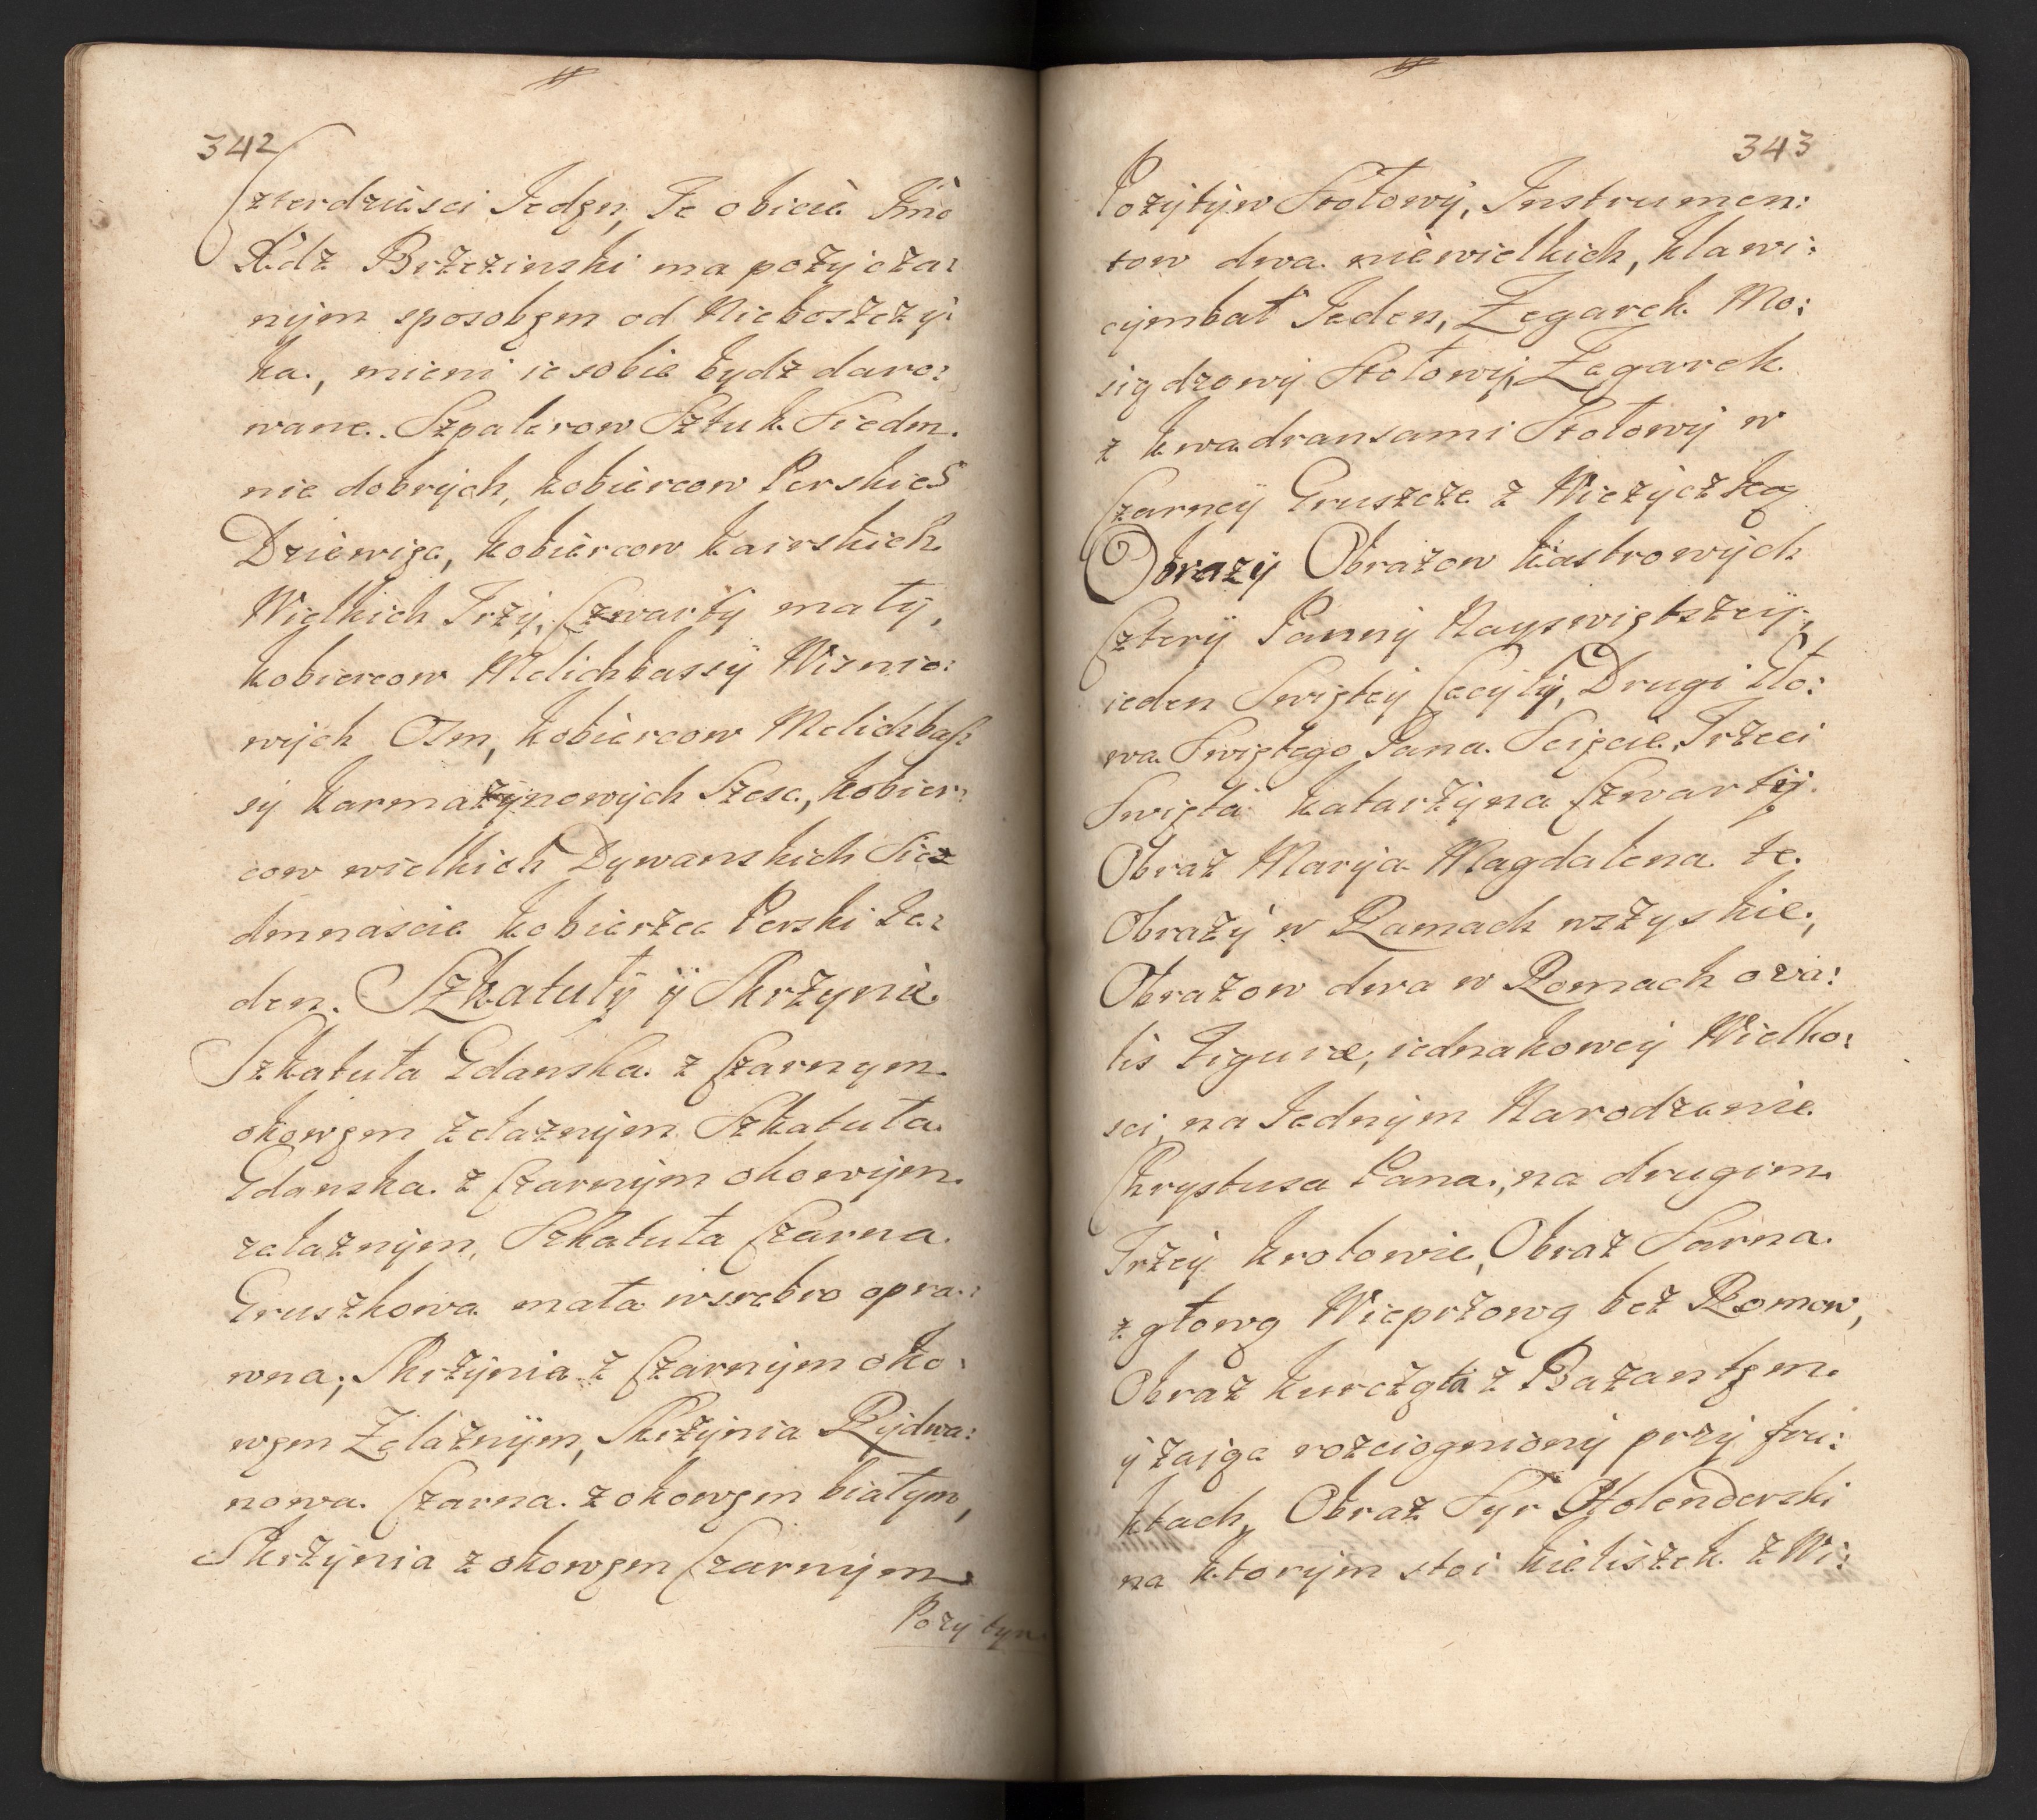 342
Czterdziesci Jedęn, Te obicia Jmć
Xdz Brzezinski ma pożyicza:
nym sposobęm od Nieboszczy:
ka, mieni ie sobie bydz daro:
wane. Szpalerow Sztuk Siedm.
nie dobrych, kobiercow Perskich
Dziewięc, kobiercow kairskich
Wielkich Trzy, Czwarty mały,
kobiercow Melichbassy Wisnio:
wych Osm, kobiercow Melichbas
sy karmazynowych Szesc, kobier:
cow wielkich Dywanskich Sie
dmnascie kobierzec Perski Je:
den. Szkatuły y Skrzynie.
Szkatuła Gdanska z Czarnym
okowęm żelaznym Szkatuła
Gdanska z Czarnym okowym
zelaznym, Szkatuła Czarna
Gruszkowa mała wsrebro opra:
wna; Skrzynia z Czarnym oko:
węm Zelaznym, Skrzynia Rydwa:
nowa Czarna z okowęm białym,
Skrzynia z okowęm Czarnym
Pozytyw
343
Pozytyw Stołowy, Instrumen:
tow dwa niewielkich, klawi:
cymbał Jeden, Zegarek Mo:
siądzowy Stołowy, Zegarek
z kwadransami Stołowy w
Czarney Gruszcze z Wieżyczką
Obrazy Obrazow Kastrowych
Cztery Panny Nayswiętszey,
ieden Swiętey Cecyly, Drugi Gło:
wa Swiętego Jana Scięcie, Trzeci
Swięta Katarzyna Czwarty
Obraz Marya Magdalena te
Obrazy w Ramach wszyskie,
Obrazow dwa w Romach ova:
lis Figuræ, iednakowey Wielko:
sci, na Jednym Narodzenie
Chrystusa Pana, na drugim
Trzey krolowie, Obraz Sarna
z głową Wieprzową bez Romow,
Obraz kurczęta z Bażantęm
y zaiąc rozciogniony przy fru:
ktach, Obraz Syr Holenderski
na ktorym stoi kieliszek z Wi: